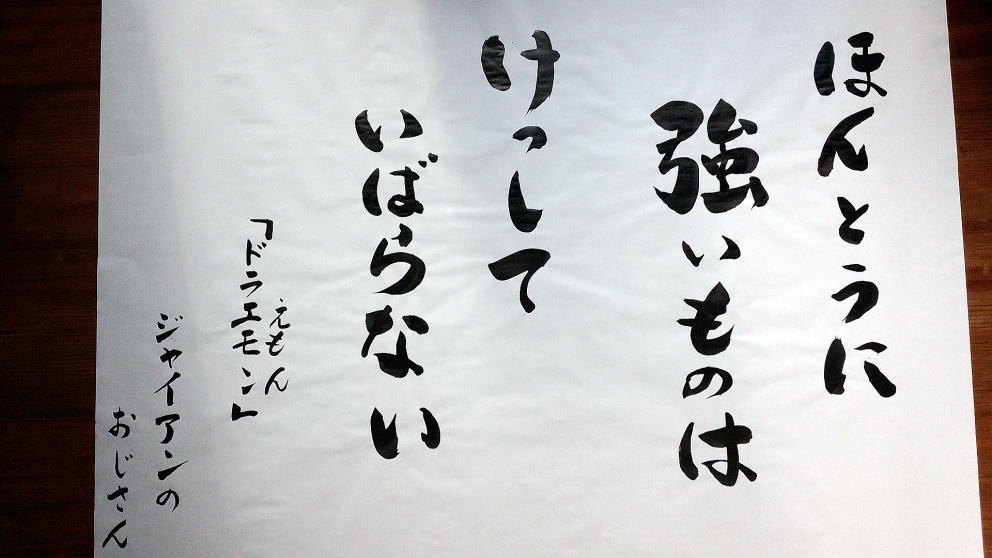 ほんとうに
強いものは
けっして
いばらない
えもん
「ドラエモン」
ジャイアンの
おじさん